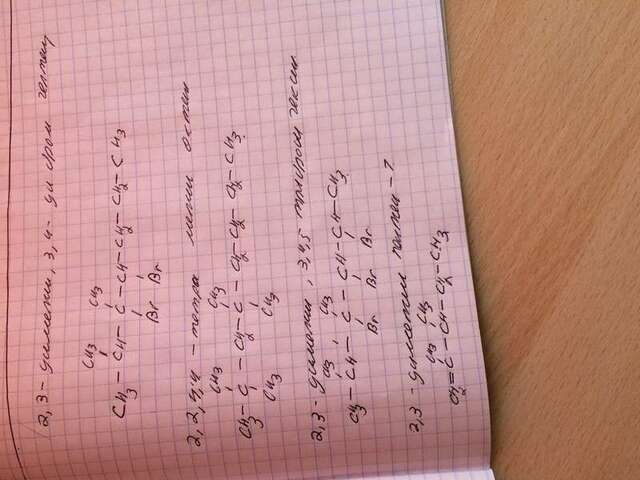 2,3 - диметил, 3,4 - ди бром гептан
CH3 CH3
CH3 – CH – C – CH – CH2 – CH2 – CH3
Br Br
2,2,4,4 - тетра метил октан
CH3 CH3
CH3 – C – CH2 – C – CH2 – CH2 – CH2 – CH3
CH3 CH3
2,3 - диметил, 3,4,5 трибром гексан
CH3 CH3
CH3 – CH – C – CH – CH – CH3
Br Br Br
2,3 - диметил пентен - 1
CH3 CH3
CH2 = C – CH – CH2 – CH3